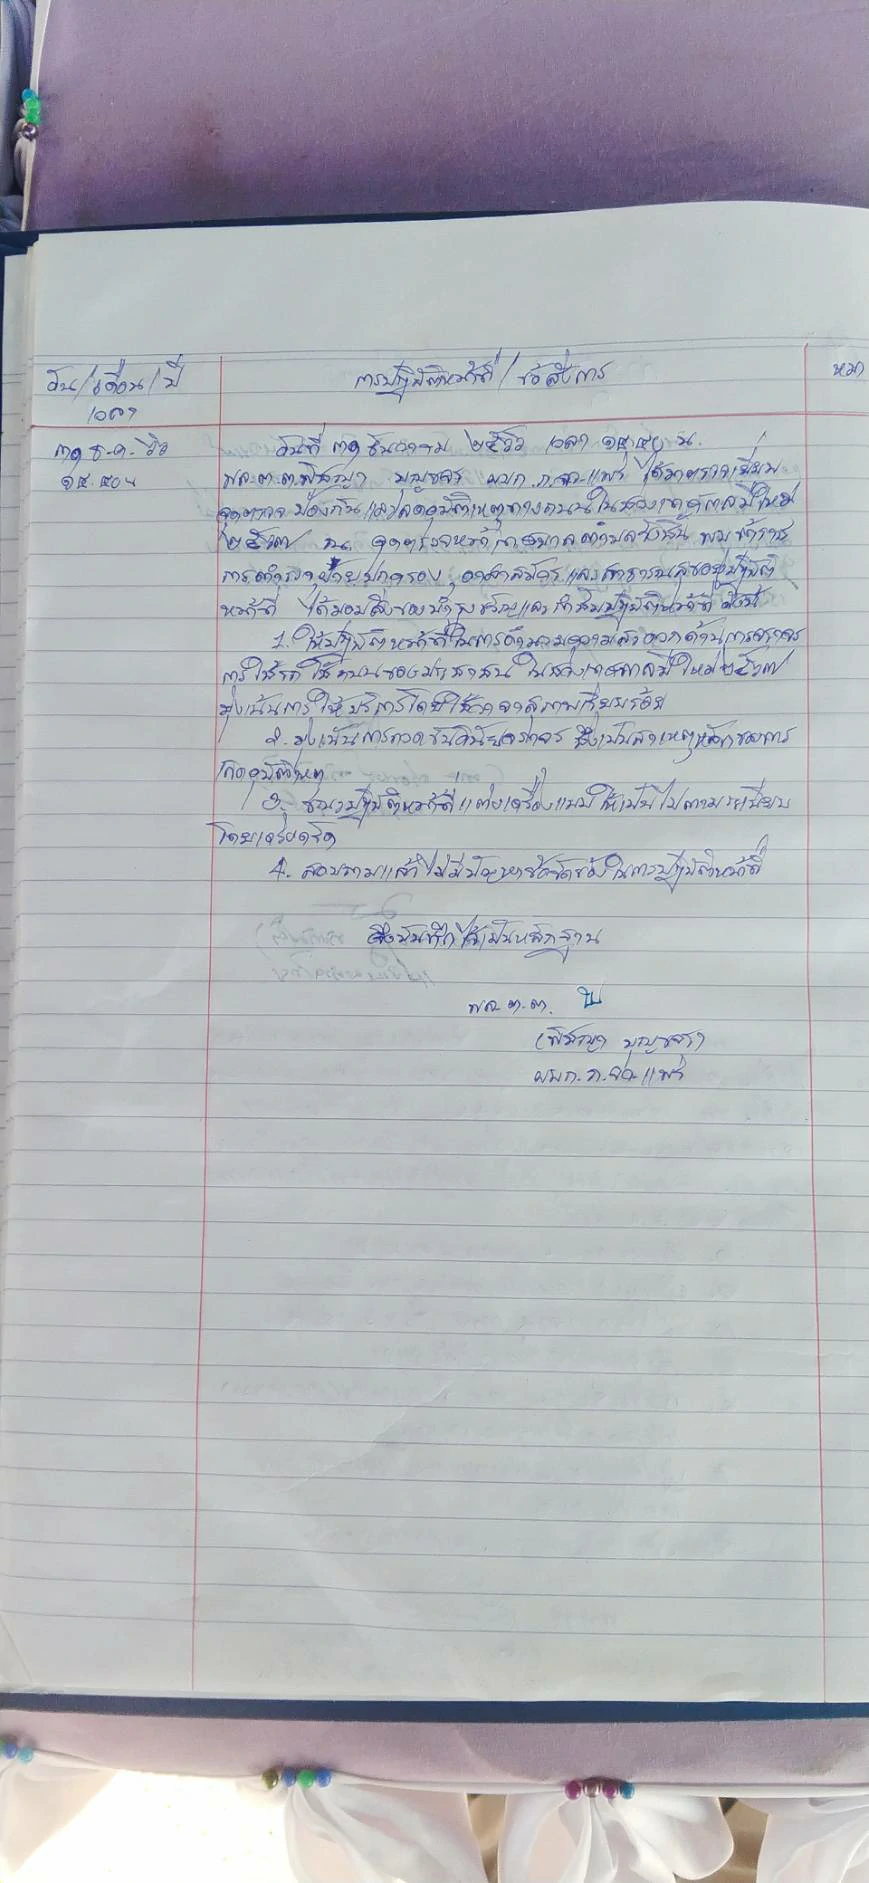 วัน/เดือน/ปี
เวลา
การปฏิบัติหน้าที่/ข้อสั่งการ
หมา
๓๑ ธ.ค. ๖๖
๑๔.๔๐ น
วันที่ ๓๑ ธันวาคม ๒๕๖๖ เวลา ๑๔.๔๐ น.
พล.ต.ต. บุญขจร ผบก.ภ.จว.แพร่ ได้มาตรวจเยี่ยม
จุดตรวจ ป้องกันและลดอุบัติเหตุทางถนนในช่วงเทศกาลปีใหม่
๒๕๖๗ ณ จุดตรวจหน้าเทศบาลตำบล พบข้าราช
การตำรวจ ฝ่ายปกครอง, อาสาสมัคร และสาธารณสุขอยู่ปฏิบัติ
หน้าที่ ได้มอบสิ่งของบำรุงขวัญและกำชับปฏิบัติหน้าที่ ดังนี้
1. ให้ปฏิบัติหน้าที่ในการอำนวยความสะดวกด้านการจราจร
การใช้รถ ใช้ถนนของประชาชน ในช่วงเทศกาลปีใหม่ ๒๕๖๗
มุ่งเน้นการให้บริการโดยใช้วาจาสุภาพเรียบร้อย
2. มุ่งเน้นการกวดขันวินัยจราจร ซึ่งเป็นสาเหตุหลักของการ
เกิดอุบัติเหตุ
3. ปฏิบัติหน้าที่ แต่งเครื่องแบบให้เป็นไปตามระเบียบ
โดยเคร่งครัด
4. สอบถามแล้วไม่มีปัญหาข้อขัดข้องในการปฏิบัติหน้าที่
จึงบันทึกไว้เป็นหลักฐาน
พล.ต.ต.
บุญขจร)
ผบก.ภ.จว.แพร่